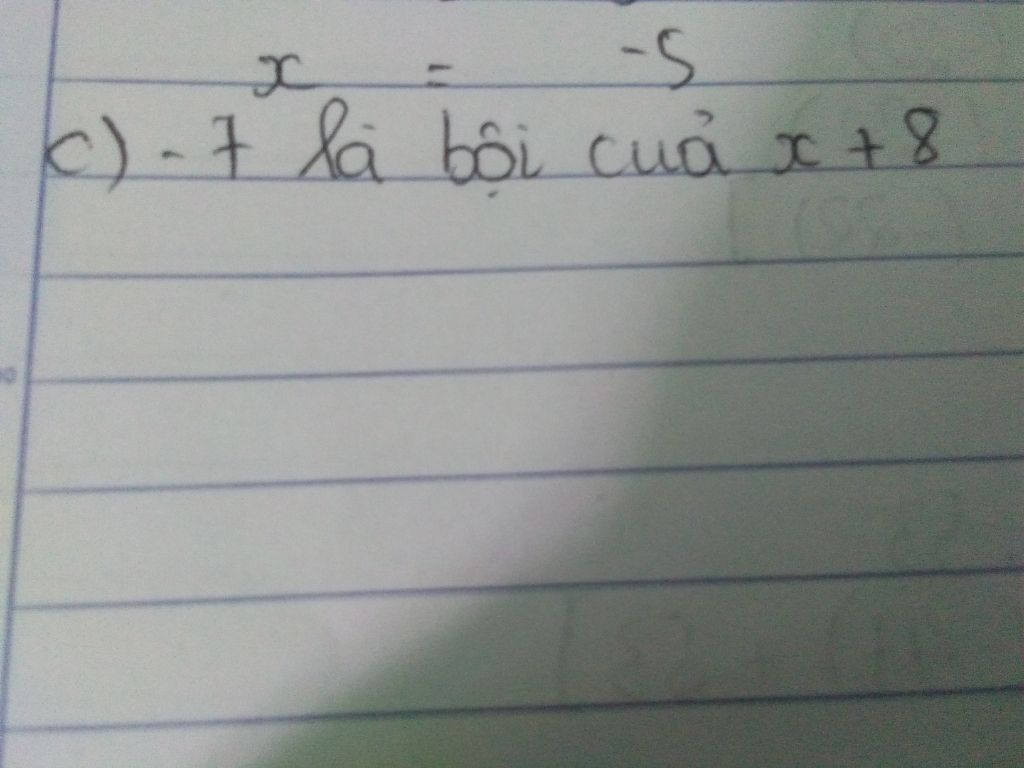 x = -5
c) -7 là bội của x + 8